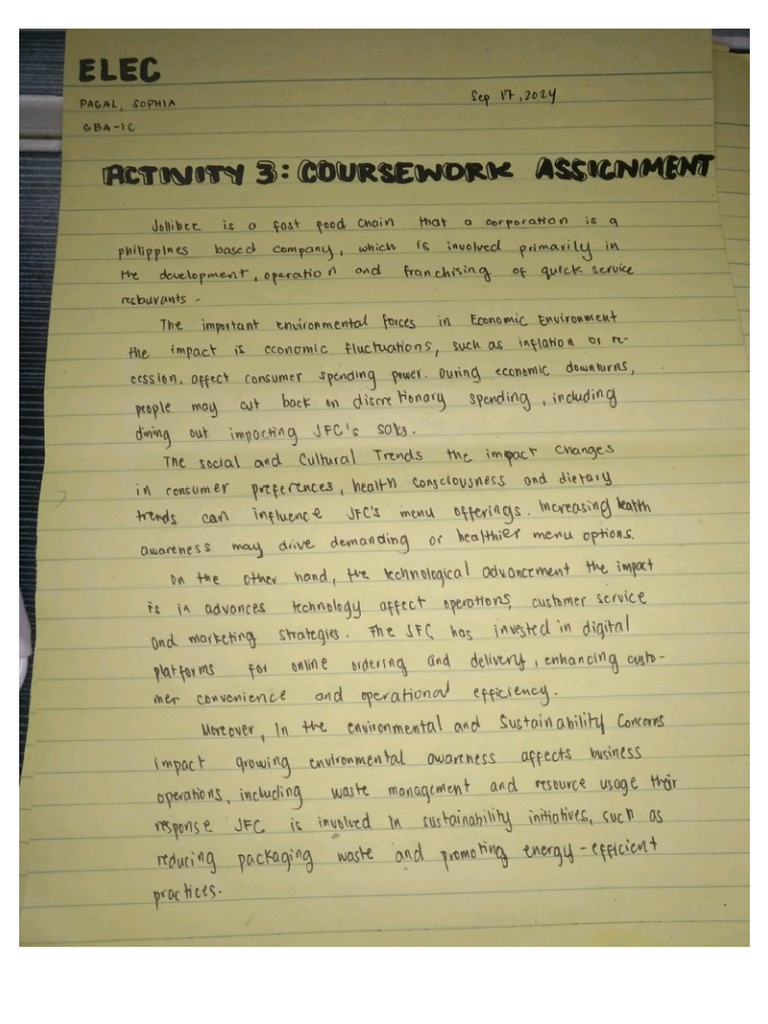 ELEC
PAGAL, SOPHIA
Sep 17, 2024
GBA-1C
ACTIVITY 3: COURSEWORK ASSIGNMENT
Jollibee is a fast food chain that a corporation is a
philippines based company, which is involved primarily in
the development, operation and franchising of quick service
restaurants -
The important environmental forces in Economic Environment
the impact is economic fluctuations, such as inflation or re-
cession. affect consumer spending power. During economic downturns,
people may cut back on discretionary spending, including
dining out impacting JFC's sales.
The social and Cultural Trends the impact changes
in consumer preferences, health consciousness and dietary
trends can influence JFC's menu offerings. Increasing health
awareness may drive demanding or healthier menu options.
On the other hand, the technological advancement the impact
is in advances technology affect operations, customer service
and marketing strategies. The JFC has invested in digital
platforms for online ordering and delivery, enhancing custo-
mer convenience and operational efficiency.
Moreover, In the environmental and Sustainability Concerns
impact growing environmental awareness affects business
operations, including waste management and resource usage their
response JFC is involved In sustainability initiatives, such as
reducing packaging waste and promoting energy-efficient
practices.